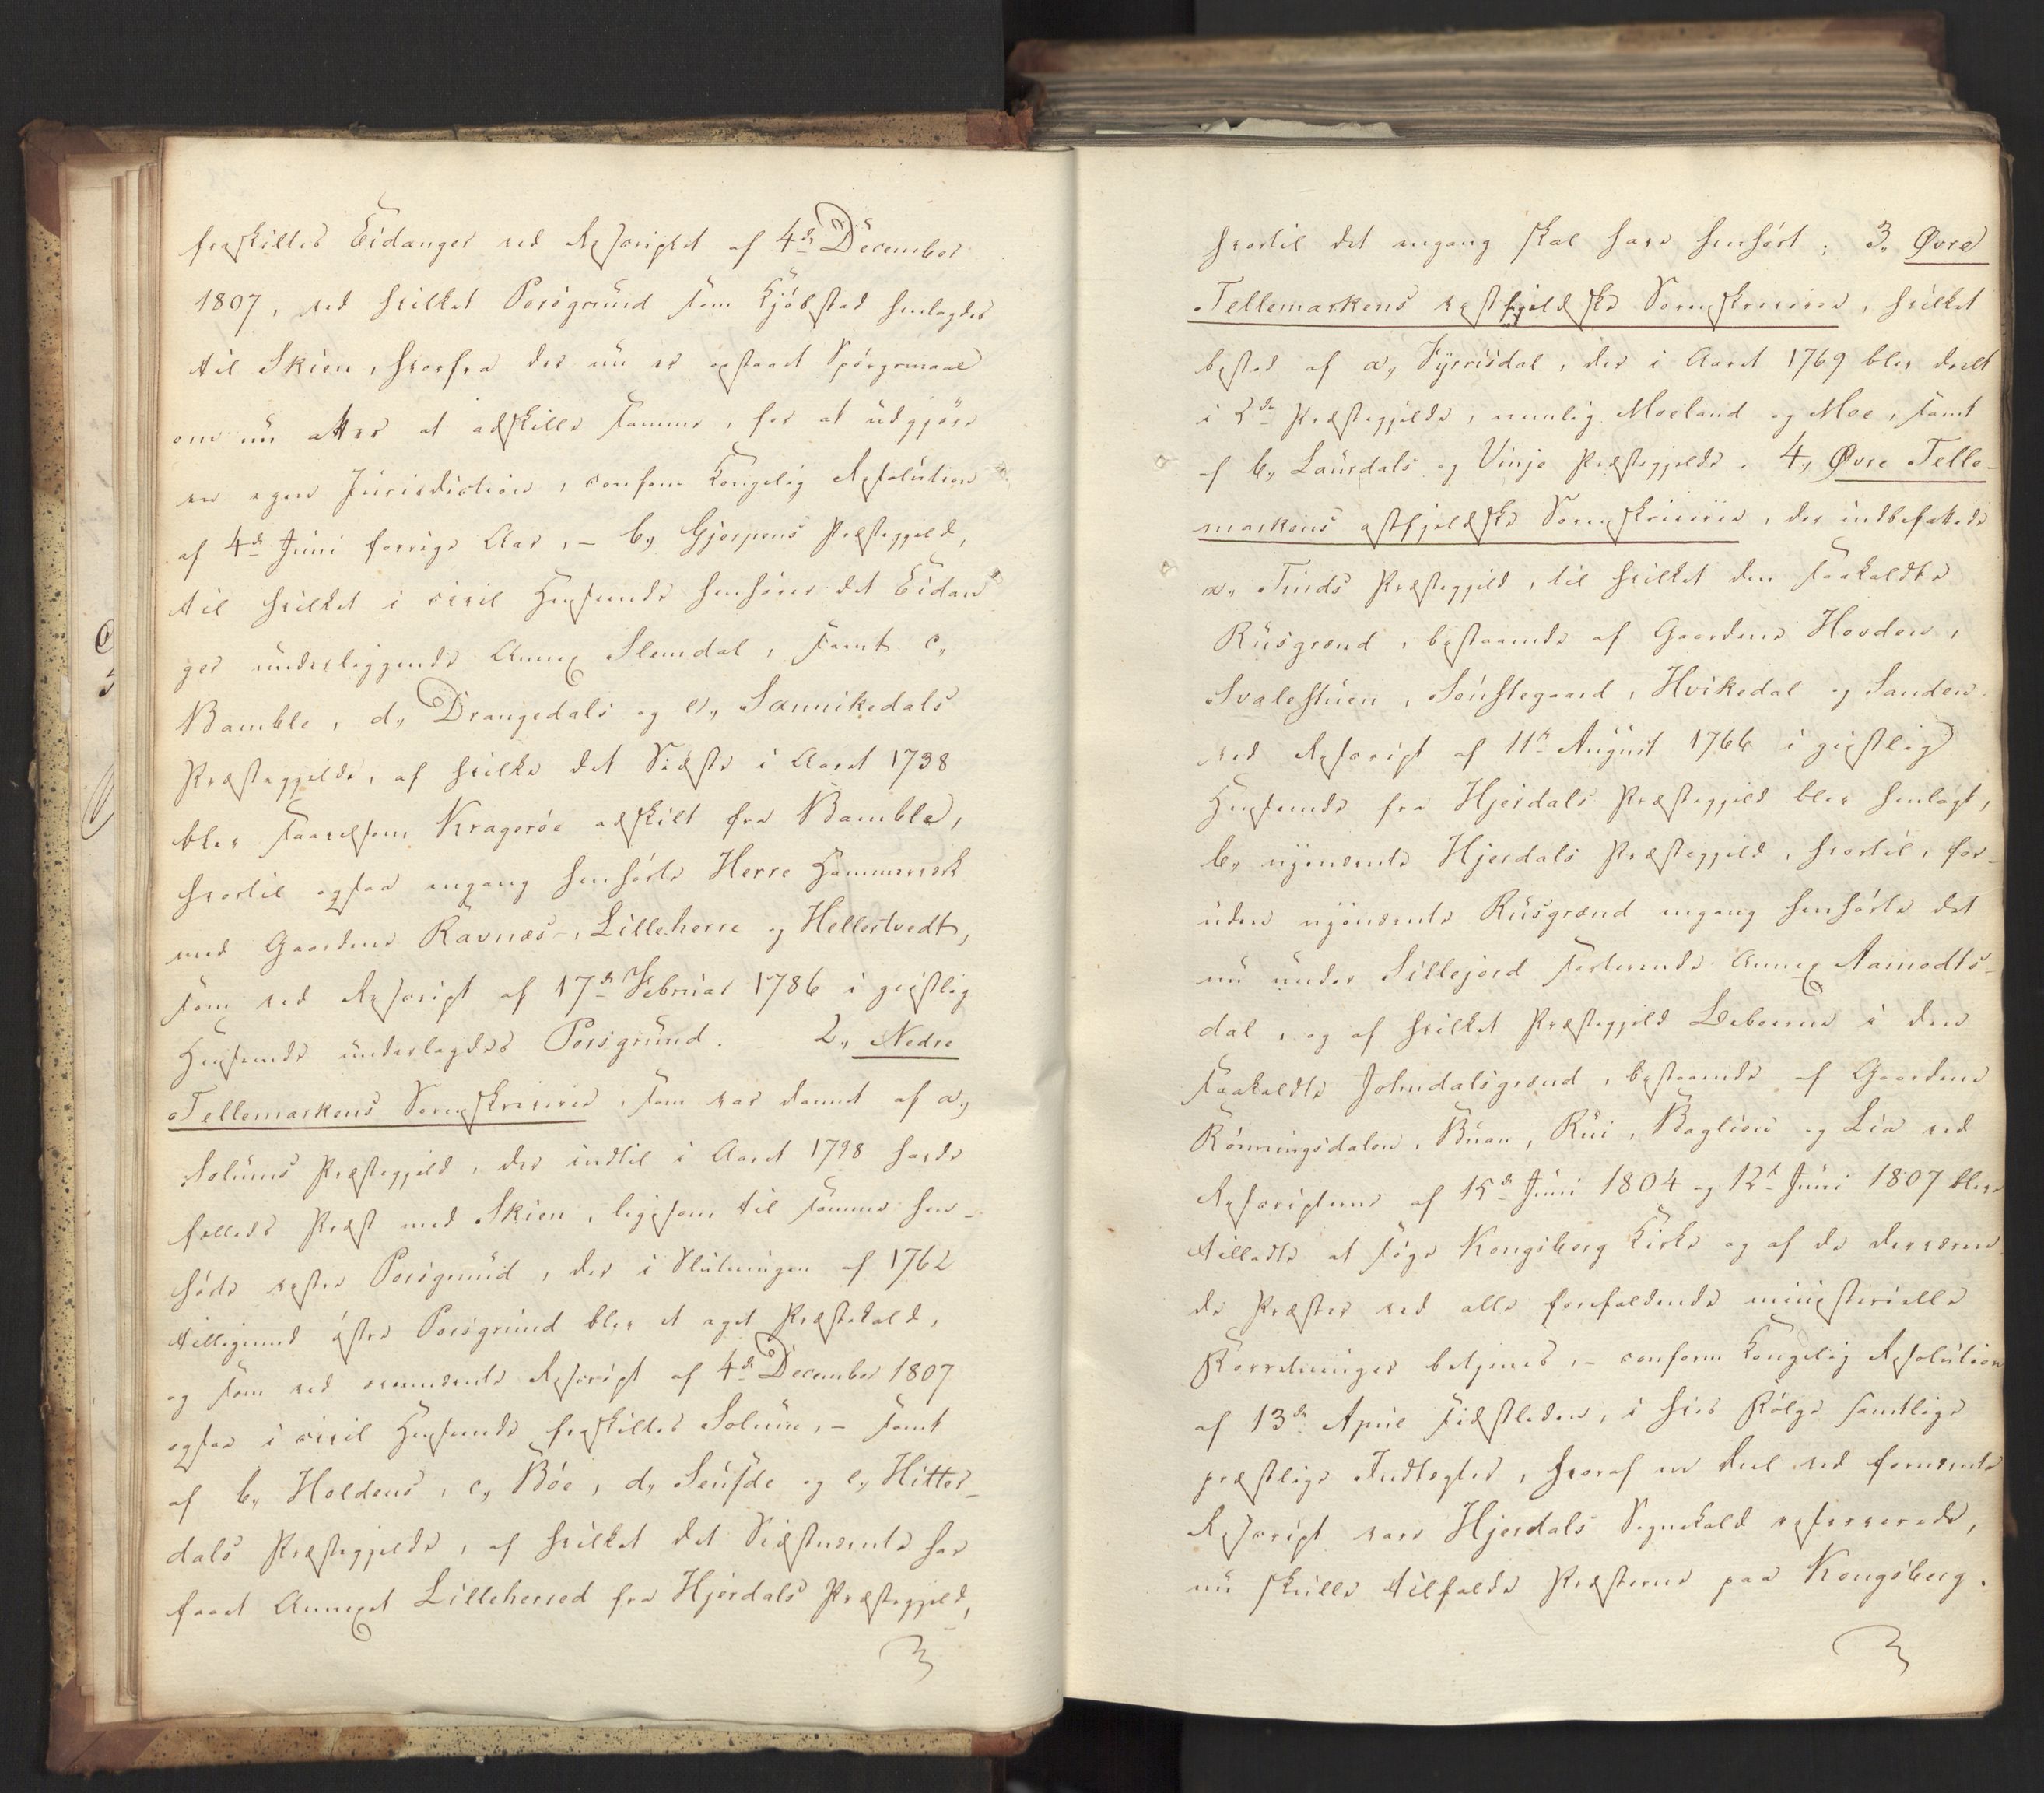 fraskilles Eidanger ved Rescriptet af 4de December
1807, ved hvilket Porsgrund som Kjöbstad henlagdes
til Skien, hvorfra der nu er opstaaet Spörgsmaal
om nu atter at adskille samme, for at udgjöre
en egen Jurisdiction, conform Kongelig Resolution
af 4de Juni forrige Aar, – b, Gjerpens Præstegjeld,
til hvilket i civil Henseende henhörer det Eidan
ger underliggende Annex Slemdal, samt c,
Bamble, d, Drangedals og e, Sannikedals
Præstegjelde, af hvilke det Sidste i Aaret 1738
blev saavelsom Krageröe adskilt fra Bamble,
hvortil ogsaa engang henhörte Herre Hammerverk
med Gaardene Ravnæs, Lilleherre og Hellestvedt,
som ved Rescript af 17de Februar 1786 i geistlig
Henseende underlagdes Porsgrund. 2, Nedre
Tellemarkens Sorenskriverie, som var dannet af a,
Solums Præstegjeld, der indtil i Aaret 1798 havde
fælleds Præst med Skien, ligesom til samme hen-
hörte vestre Porsgrund, der i Slutningen af 1762
tilligemed östre Porsgrund blev et eget Præstekald,
og som ved ovennævnte Rescript af 4de December 1807
ogsaa i civil Henseende fraskilles Solum, – samt
af b, Holdens, c, Böe, d, Seufde og e, Hitter-
dals Præstegjelde, af hvilket det Sidstnævnte har
faaet Annexet Lilleherred fra Hjerdals Præstegjeld,
hvortil det engang skal have henhört; 3, Øvre
Tellemarkens vestfjeldske Sorenskriverie, hvilket
bestod af a, Vyrrisdal, der i Aaret 1769 blev deelt
i 2de Præstegjelde, nemlig Moeland og Moe, samt
af b, Laurdals og Vinje Præstegjelde. 4, Øvre Telle-
markens østfjeldske Sorenskriverie, der indbefattede
a, Tinds Præstegjeld, til hvilket den saakaldte
Rusgrænd, bestaaende af Gaardene Hovden,
Svalestuen, Sönstegaard, Hvikedal og Sanden
ved Rescript af 11te August 1766 i geistlig
Henseende fra Hjerdals Præstegjeld blev henlagt,
b, nysnævnte Hjerdals Præstegjeld, hvortil, for-
uden nysnævnte Rusgrænd engang henhörte det
nu under Sillejord sorterende Annex Aamodts-
dal, og af hvilket Præstegjeld Beboerne i den
saakaldte Johndalsgrænd, bestaaende af Gaardene
Rönningsdalen, Buan, Rui, Baglien og Lia ved
Rescripterne af 15de Juni 1804 og 12te Juni 1807 bleve
tilladte at söge Kongsberg Kirke og af de derværen
de Præster ved alle forefaldende ministerielle
Forretninger betjenes, – conform Kongelig Resolution
af 13de April sidstleden, i hvis Fölge samtlige
præstlige Indtægter, hvoraf en Deel ved fornævnte
Rescript vare Hjerdals Sognekald reserverede,
nu skulle tilfalde Præsterne paa Kongsberg.